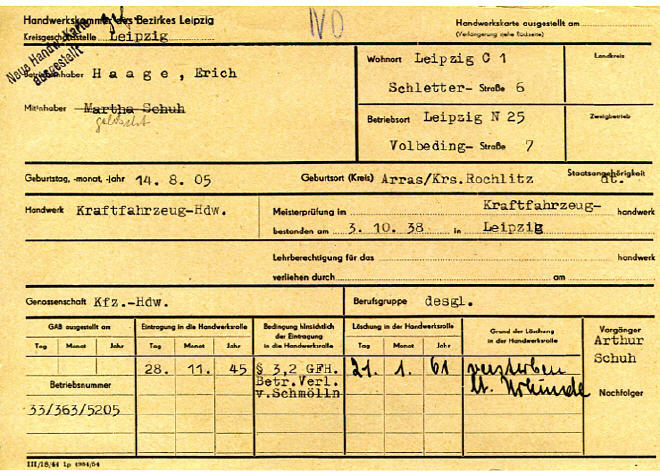 Handwerkskammer des Bezirkes Leipzig
Kreisgeschäftsstelle Leipzig
Handwerkskarte ausgestellt am
(Verlängerung siehe Rückseite)
Neue Handw.-Karte
ausgestellt
Betriebsinhaber Haage, Erich
Mitinhaber Martha Schuh
gelöscht
Wohnort Leipzig C 1
Schletter- Straße 6
Landkreis
Betriebsort Leipzig N 25
Volbeding- Straße 7
Zweigbetrieb
Geburtstag, -monat, -jahr 14. 8. 05
Geburtsort (Kreis) Arras/Krs.Rochlitz
Staatsangehörigkeit dt.
Handwerk Kraftfahrzeug-Hdw.
Meisterprüfung im Kraftfahrzeug- handwerk
bestanden am 3. 10. 38 in Leipzig
Lehrberechtigung für das handwerk
verliehen durch am
Genossenschaft Kfz.-Hdw.
Berufsgruppe desgl.
GAB ausgestellt am
Tag Monat Jahr
Betriebsnummer
33/363/5205
Eintragung in die Handwerksrolle
Tag Monat Jahr
28. 11. 45
Bedingung hinsichtlich
der Eintragung
in die Handwerksrolle
§ 3,2 GFH.
Betr.Verl.
v.Schmölln
Löschung in der Handwerksrolle
Tag Monat Jahr
21. 1. 61
Grund der Löschung
in der Handwerksrolle
verstorben
lt. Urkunde
Vorgänger
Arthur
Schuh
Nachfolger
III/18/44 Lp 4984/54